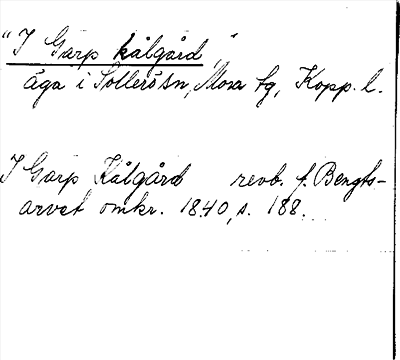 "I Garp kålgård,"
äga i Sollerö sn, Mora tg, Kopp. l.
I Garp Kålgård revb. f. Bengts-
arvet omkr. 1840, s. 188.